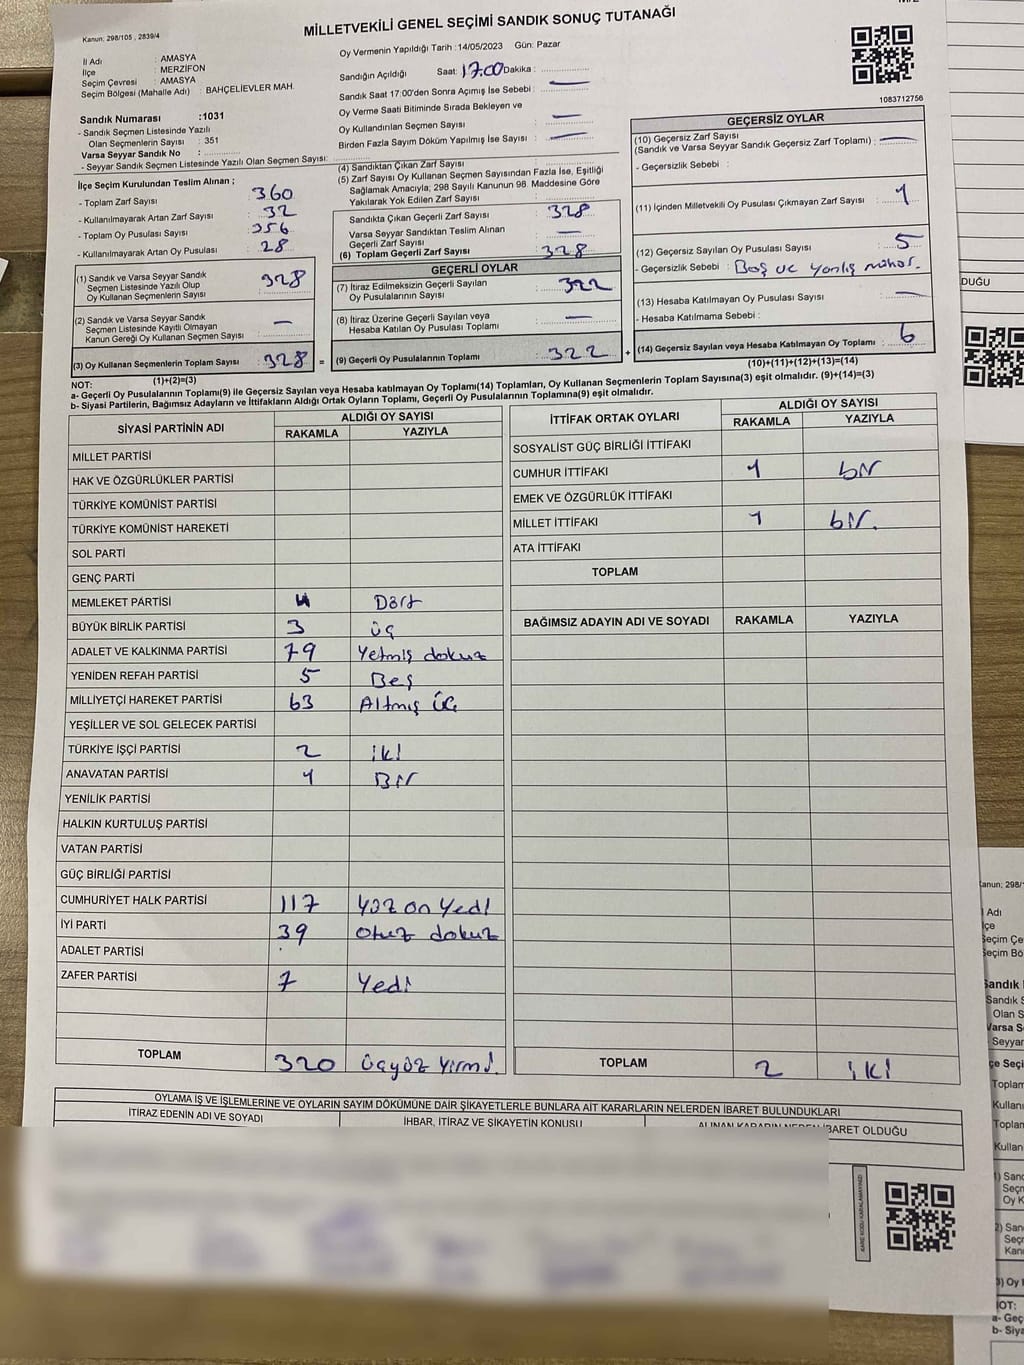 MİLLETVEKİLİ GENEL SEÇİMİ SANDIK SONUÇ TUTANAĞI
Kanun: 298/105 , 2839/4
Oy Vermenin Yapıldığı Tarih : 14/05/2023 Gün: Pazar
İl Adı : AMASYA
İlçe : MERZİFON
Seçim Çevresi : AMASYA
Seçim Bölgesi (Mahalle Adı) : BAHÇELİEVLER MAH.
Sandık Numarası :1031
- Sandık Seçmen Listesinde Yazılı
Olan Seçmenlerin Sayısı : 351
Varsa Seyyar Sandık No :
- Seyyar Sandık Seçmen Listesinde Yazılı Olan Seçmen Sayısı:
Sandığın Açıldığı Saat: 17.00 Dakika :
Sandık Saat 17:00'den Sonra Açımış İse Sebebi : —
Oy Verme Saati Bitiminde Sırada Bekleyen ve
Oy Kullandırılan Seçmen Sayısı : —
Birden Fazla Sayım Döküm Yapılmış İse Sayısı : —
1083712756
İlçe Seçim Kurulundan Teslim Alınan ;
- Toplam Zarf Sayısı : 360
- Kullanılmayarak Artan Zarf Sayısı : 32
- Toplam Oy Pusulası Sayısı : 356
- Kullanılmayarak Artan Oy Pusulası : 28
(1) Sandık ve Varsa Seyyar Sandık
Seçmen Listesinde Yazılı Olup
Oy Kullanan Seçmenlerin Sayısı : 328
(2) Sandık ve Varsa Seyyar Sandık
Seçmen Listesinde Kayıtlı Olmayan
Kanun Gereği Oy Kullanan Seçmen Sayısı : —
(3) Oy Kullanan Seçmenlerin Toplam Sayısı : 328 =
(1)+(2)=(3)
(4) Sandıktan Çıkan Zarf Sayısı :
(5) Zarf Sayısı Oy Kullanan Seçmen Sayısından Fazla İse, Eşitliği
Sağlamak Amacıyla; 298 Sayılı Kanunun 98. Maddesine Göre
Yakılarak Yok Edilen Zarf Sayısı :
Sandıkta Çıkan Geçerli Zarf Sayısı : 328
Varsa Seyyar Sandıktan Teslim Alınan
Geçerli Zarf Sayısı : —
(6) Toplam Geçerli Zarf Sayısı : 328
GEÇERLİ OYLAR
(7) İtiraz Edilmeksizin Geçerli Sayılan
Oy Pusulasının Sayısı : 322
(8) İtiraz Üzerine Geçerli Sayılan veya
Hesaba Katılan Oy Pusulası Toplamı : —
(9) Geçerli Oy Pusulalarının Toplamı : 322 +
GEÇERSİZ OYLAR
(10) Geçersiz Zarf Sayısı
(Sandık ve Varsa Seyyar Sandık Geçersiz Zarf Toplamı) : —
- Geçersizlik Sebebi :
(11) İçinden Milletvekili Oy Pusulası Çıkmayan Zarf Sayısı : 1
(12) Geçersiz Sayılan Oy Pusulası Sayısı : 5
- Geçersizlik Sebebi : Boş ve yanlış mühür.
(13) Hesaba Katılmayan Oy Pusulası Sayısı : —
- Hesaba Katılmama Sebebi :
(14) Geçersiz Sayılan veya Hesaba Katılmayan Oy Toplamı : 6
(10)+(11)+(12)+(13)=(14)
NOT:
a- Geçerli Oy Pusulalarının Toplamı(9) ile Geçersiz Sayılan veya Hesaba katılmayan Oy Toplamı(14) Toplamları, Oy Kullanan Seçmenlerin Toplam Sayısına(3) eşit olmalıdır. (9)+(14)=(3)
b- Siyasi Partilerin, Bağımsız Adayların ve İttifakların Aldığı Ortak Oyların Toplamı, Geçerli Oy Pusulalarının Toplamına(9) eşit olmalıdır.
SİYASİ PARTİNİN ADI ALDIĞI OY SAYISI
RAKAMLA YAZIYLA
MİLLET PARTİSİ
HAK VE ÖZGÜRLÜKLER PARTİSİ
TÜRKİYE KOMÜNİST PARTİSİ
TÜRKİYE KOMÜNİST HAREKETİ
SOL PARTİ
GENÇ PARTİ
MEMLEKET PARTİSİ 4 Dört
BÜYÜK BİRLİK PARTİSİ 3 üç
ADALET VE KALKINMA PARTİSİ 79 Yetmiş dokuz
YENİDEN REFAH PARTİSİ 5 Beş
MİLLİYETÇİ HAREKET PARTİSİ 63 Altmış üç
YEŞİLLER VE SOL GELECEK PARTİSİ
TÜRKİYE İŞÇİ PARTİSİ 2 iki
ANAVATAN PARTİSİ 1 Bir
YENİLİK PARTİSİ
HALKIN KURTULUŞ PARTİSİ
VATAN PARTİSİ
GÜÇ BİRLİĞİ PARTİSİ
CUMHURİYET HALK PARTİSİ 117 Yüz on yedi
İYİ PARTİ 39 otuz dokuz
ADALET PARTİSİ
ZAFER PARTİSİ 7 Yedi
TOPLAM 320 üçyüz yirmi.
İTTİFAK ORTAK OYLARI ALDIĞI OY SAYISI
RAKAMLA YAZIYLA
SOSYALİST GÜÇ BİRLİĞİ İTTİFAKI
CUMHUR İTTİFAKI 1 bir
EMEK VE ÖZGÜRLÜK İTTİFAKI
MİLLET İTTİFAKI 1 bir.
ATA İTTİFAKI
TOPLAM
BAĞIMSIZ ADAYIN ADI VE SOYADI RAKAMLA YAZIYLA
TOPLAM 2 iki
OYLAMA İŞ VE İŞLEMLERİNE VE OYLARIN SAYIM DÖKÜMÜNE DAİR ŞİKAYETLERLE BUNLARA AİT KARARLARIN NELERDEN İBARET BULUNDUKLARI
İTİRAZ EDENİN ADI VE SOYADI
İHBAR, İTİRAZ VE ŞİKAYETİN KONUSU
ALINAN KARARIN NEDEN İBARET OLDUĞU
KARE KODU KARALAMAYINIZ!
DUĞU
Kanun; 298/1
İl Adı
İlçe
Seçim Çe
Seçim Bö
Sandık
Sandık S
Olan S
Varsa S
Seyyar
İlçe Seçi
Toplam
Kullanı
Toplan
Kullan
1) Sanc
Seçr
Oy K
2) San
Seçr
Kanı
3) Oy I
NOT:
a- Geç
b- Siya